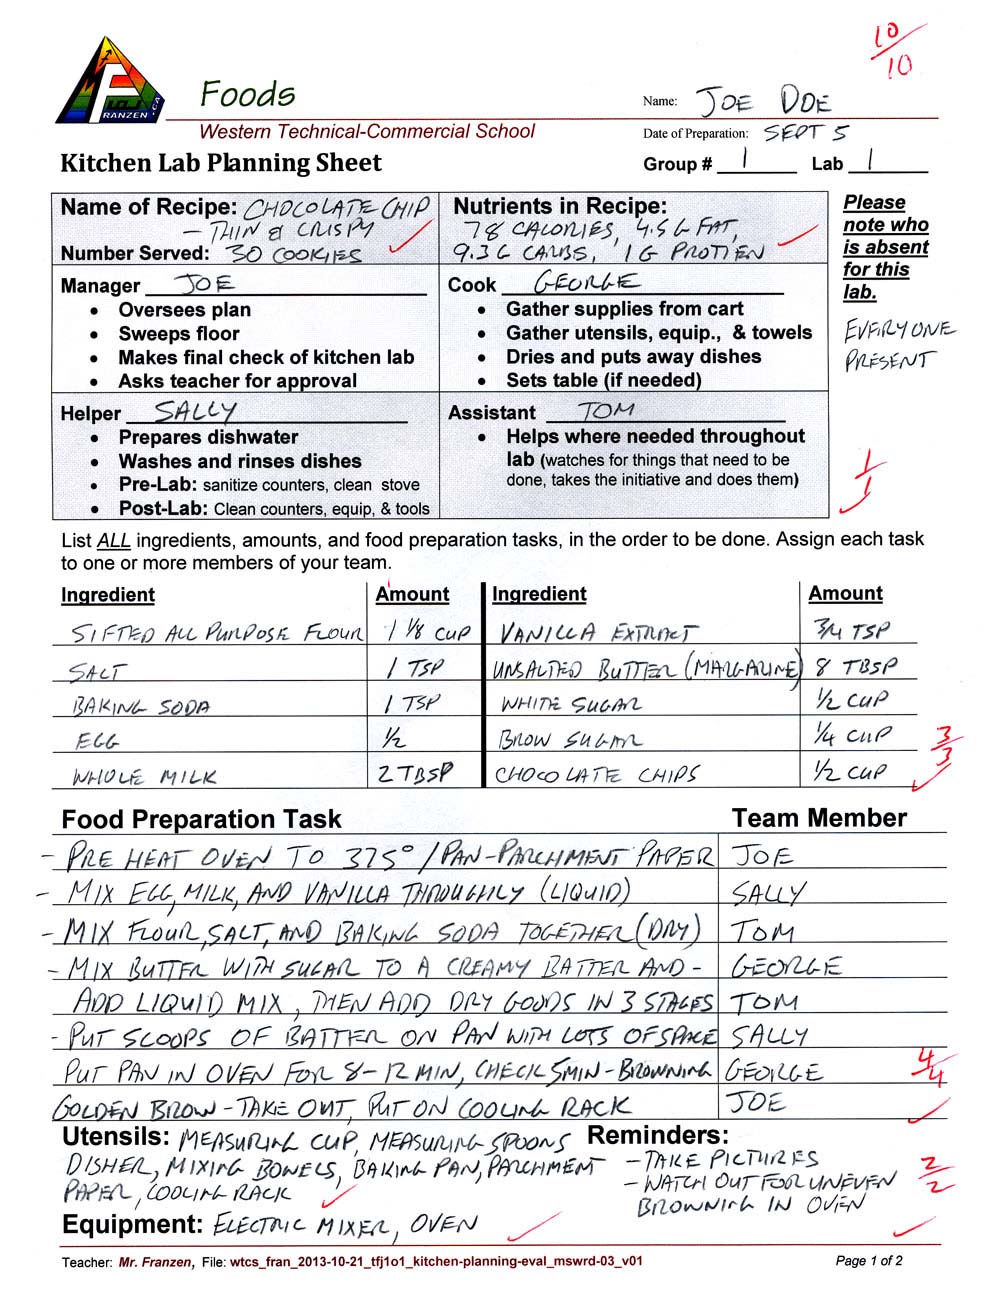 10/10
FRANZEN .CA
Foods
Name: JOE DOE
Western Technical-Commercial School
Date of Preparation: SEPT 5
Kitchen Lab Planning Sheet
Group # 1 Lab 1
Name of Recipe: CHOCOLATE CHIP
- THIN & CRISPY
Number Served: 30 COOKIES
Nutrients in Recipe:
78 CALORIES, 4.5 G FAT,
9.3 G CARBS, 1 G PROTIEN
Please
note who
is absent
for this
lab.
EVERYONE
PRESENT
Manager JOE
• Oversees plan
• Sweeps floor
• Makes final check of kitchen lab
• Asks teacher for approval
Cook GEORGE
• Gather supplies from cart
• Gather utensils, equip., & towels
• Dries and puts away dishes
• Sets table (if needed)
Helper SALLY
• Prepares dishwater
• Washes and rinses dishes
• Pre-Lab: sanitize counters, clean stove
• Post-Lab: Clean counters, equip, & tools
Assistant TOM
• Helps where needed throughout
lab (watches for things that need to be
done, takes the initiative and does them)
1/1
List ALL ingredients, amounts, and food preparation tasks, in the order to be done. Assign each task
to one or more members of your team.
Ingredient Amount Ingredient Amount
SIFTED ALL PURPOSE FLOUR 1 1/8 CUP VANILLA EXTRACT 3/4 TSP
SALT 1 TSP UNSALTED BUTTER (MARGARINE) 8 TBSP
BAKING SODA 1 TSP WHITE SUGAR 1/2 CUP
EGG 1/2 BROW SUGAR 1/4 CUP
WHOLE MILK 2 TBSP CHOCOLATE CHIPS 1/2 CUP
3/3
Food Preparation Task Team Member
- PRE HEAT OVEN TO 375° / PAN-PARCHMENT PAPER JOE
- MIX EGG, MILK, AND VANILLA THROUGHLY (LIQUID) SALLY
- MIX FLOUR, SALT, AND BAKING SODA TOGETHER (DRY) TOM
- MIX BUTTER WITH SUGAR TO A CREAMY BATTER AND - GEORGE
ADD LIQUID MIX, THEN ADD DRY GOODS IN 3 STAGES TOM
- PUT SCOOPS OF BATTER ON PAN WITH LOTS OF SPACE SALLY
PUT PAN IN OVEN FOR 8-12 MIN, CHECK 5MIN - BROWNING GEORGE
GOLDEN BROW - TAKE OUT, PUT ON COOLING RACK JOE
4/4
Utensils: MEASURING CUP, MEASURING SPOONS
DISHER, MIXING BOWELS, BAKING PAN, PARCHMENT
PAPER, COOLING RACK
Reminders:
- TAKE PICTURES
- WATCH OUT FOR UNEVEN
BROWNING IN OVEN
2/2
Equipment: ELECTRIC MIXER, OVEN
Teacher: Mr. Franzen, File: wtcs_fran_2013-10-21_tfj1o1_kitchen-planning-eval_mswrd-03_v01
Page 1 of 2